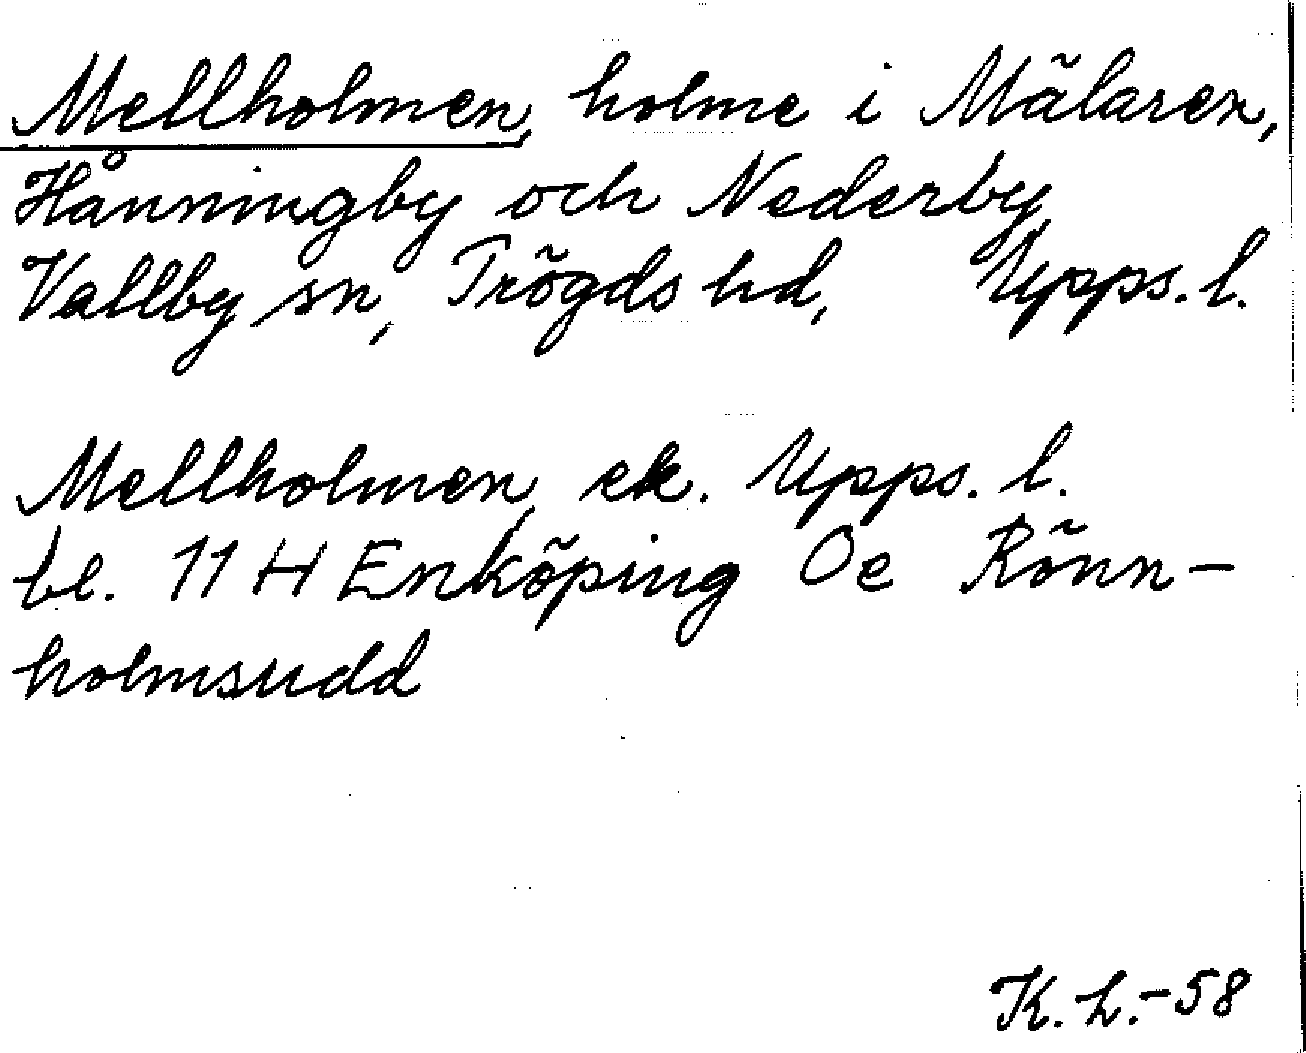 Mellholmen, holme i Mälaren,
Hånningby och Nederby
Vallby sn, Trögds hd, Upps. l.
Mellholmen, ek. Upps. l.
bl. 11 H Enköping Oe Rönn-
holmsudd
K. L. - 58